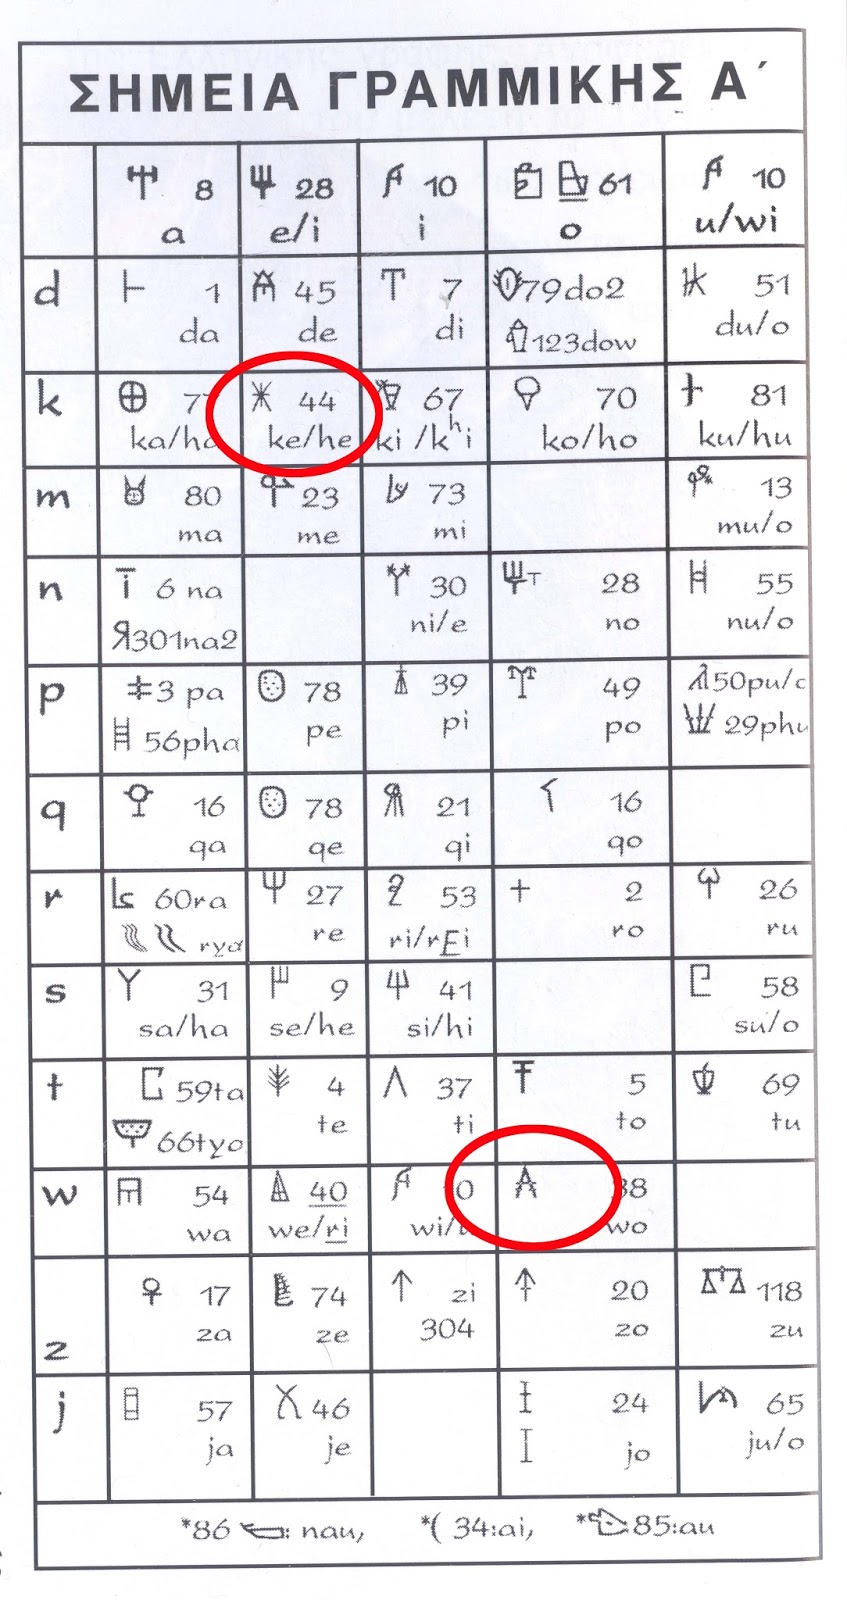 ΣΗΜΕΙΑ ΓΡΑΜΜΙΚΗΣ Α΄
8 28 10 61 10
a e/i i o u/wi
d 1 45 7 79do2 51
da de di 123dow du/o
k 44 67 70 81
ke/he ki/kʰi ko/ho ku/hu
m 80 23 73 13
ma me mi mu/o
n 6 na 30 28 55
301na2 ni/e no nu/o
p 3 pa 78 39 49
56pha pe pi po 29phu
q 16 78 21 16
qa qe qi qo
r 60ra 27 53 2 26
rya re ri/rEi ro ru
s 31 9 41 58
sa/ha se/he si/hi su/o
t 59ta 4 37 5 69
66tyo te ti to tu
w 54 40
wa we/ri wo
z 17 74 zi 20 118
za ze 304 zo zu
j 57 46 24 65
ja je jo ju/o
*86 : nau, *( 34:ai, * 85:au